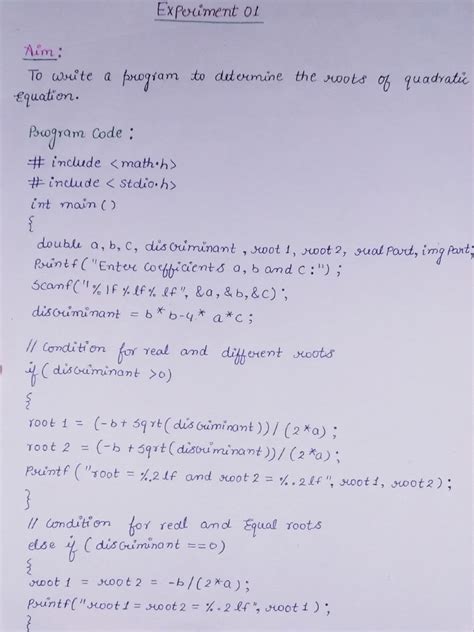 Experiment 01
Aim:
To write a program to determine the roots of quadratic
equation.
Program Code:
# include <math.h>
# include < stdio.h>
int main ()
{
double a, b, c, discriminant, root 1, root 2, real Part, img Part;
Printf ("Enter Coefficients a, b and c :") ;
Scanf("% lf % lf % lf", &a, &b, &c) ;
discriminant = b* b-4* a*c ;
// Condition for real and different roots
if ( discriminant >0)
{
root 1 = (-b + sqrt( discriminant)) / (2*a) ;
root 2 = (-b + sqrt( discriminant)) / (2*a) ;
Printf ("root = %.2 lf and root 2 = %.2 lf", root 1, root 2) ;
}
// Condition for real and Equal roots
else if ( discriminant ==0)
{
root 1 = root 2 = -b/(2*a) ;
Printf("root 1 = root 2 = %.2 lf", root 1 ) ;
}